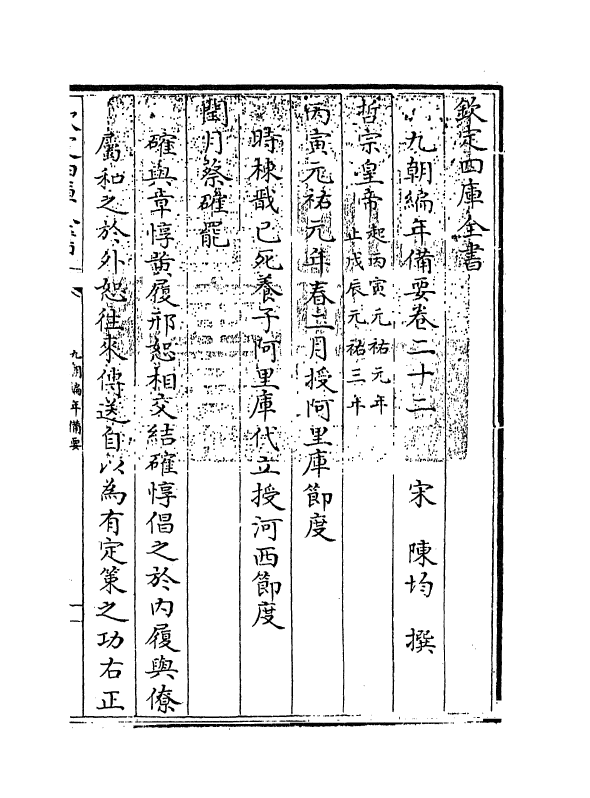 欽定四庫全書
九朝編年備要卷二十二　宋　陳均　撰
哲宗皇帝起丙寅元祐元年
止戊辰元祐三年
丙寅元祐元年春二月授阿里庫節度
時棟戩已死養子阿里庫代立授河西節度
閏月蔡確罷
確與章惇黄履邢恕相交結確惇倡之於内履與僚
屬和之於外恕往來傳送自以為有定策之功右正
九朝編年備要
一